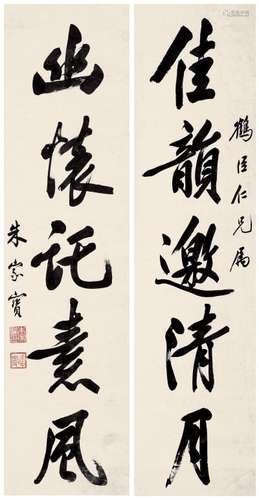 佳韻邀清月
鶴臣仁兄属
幽懐託素風
朱家寶